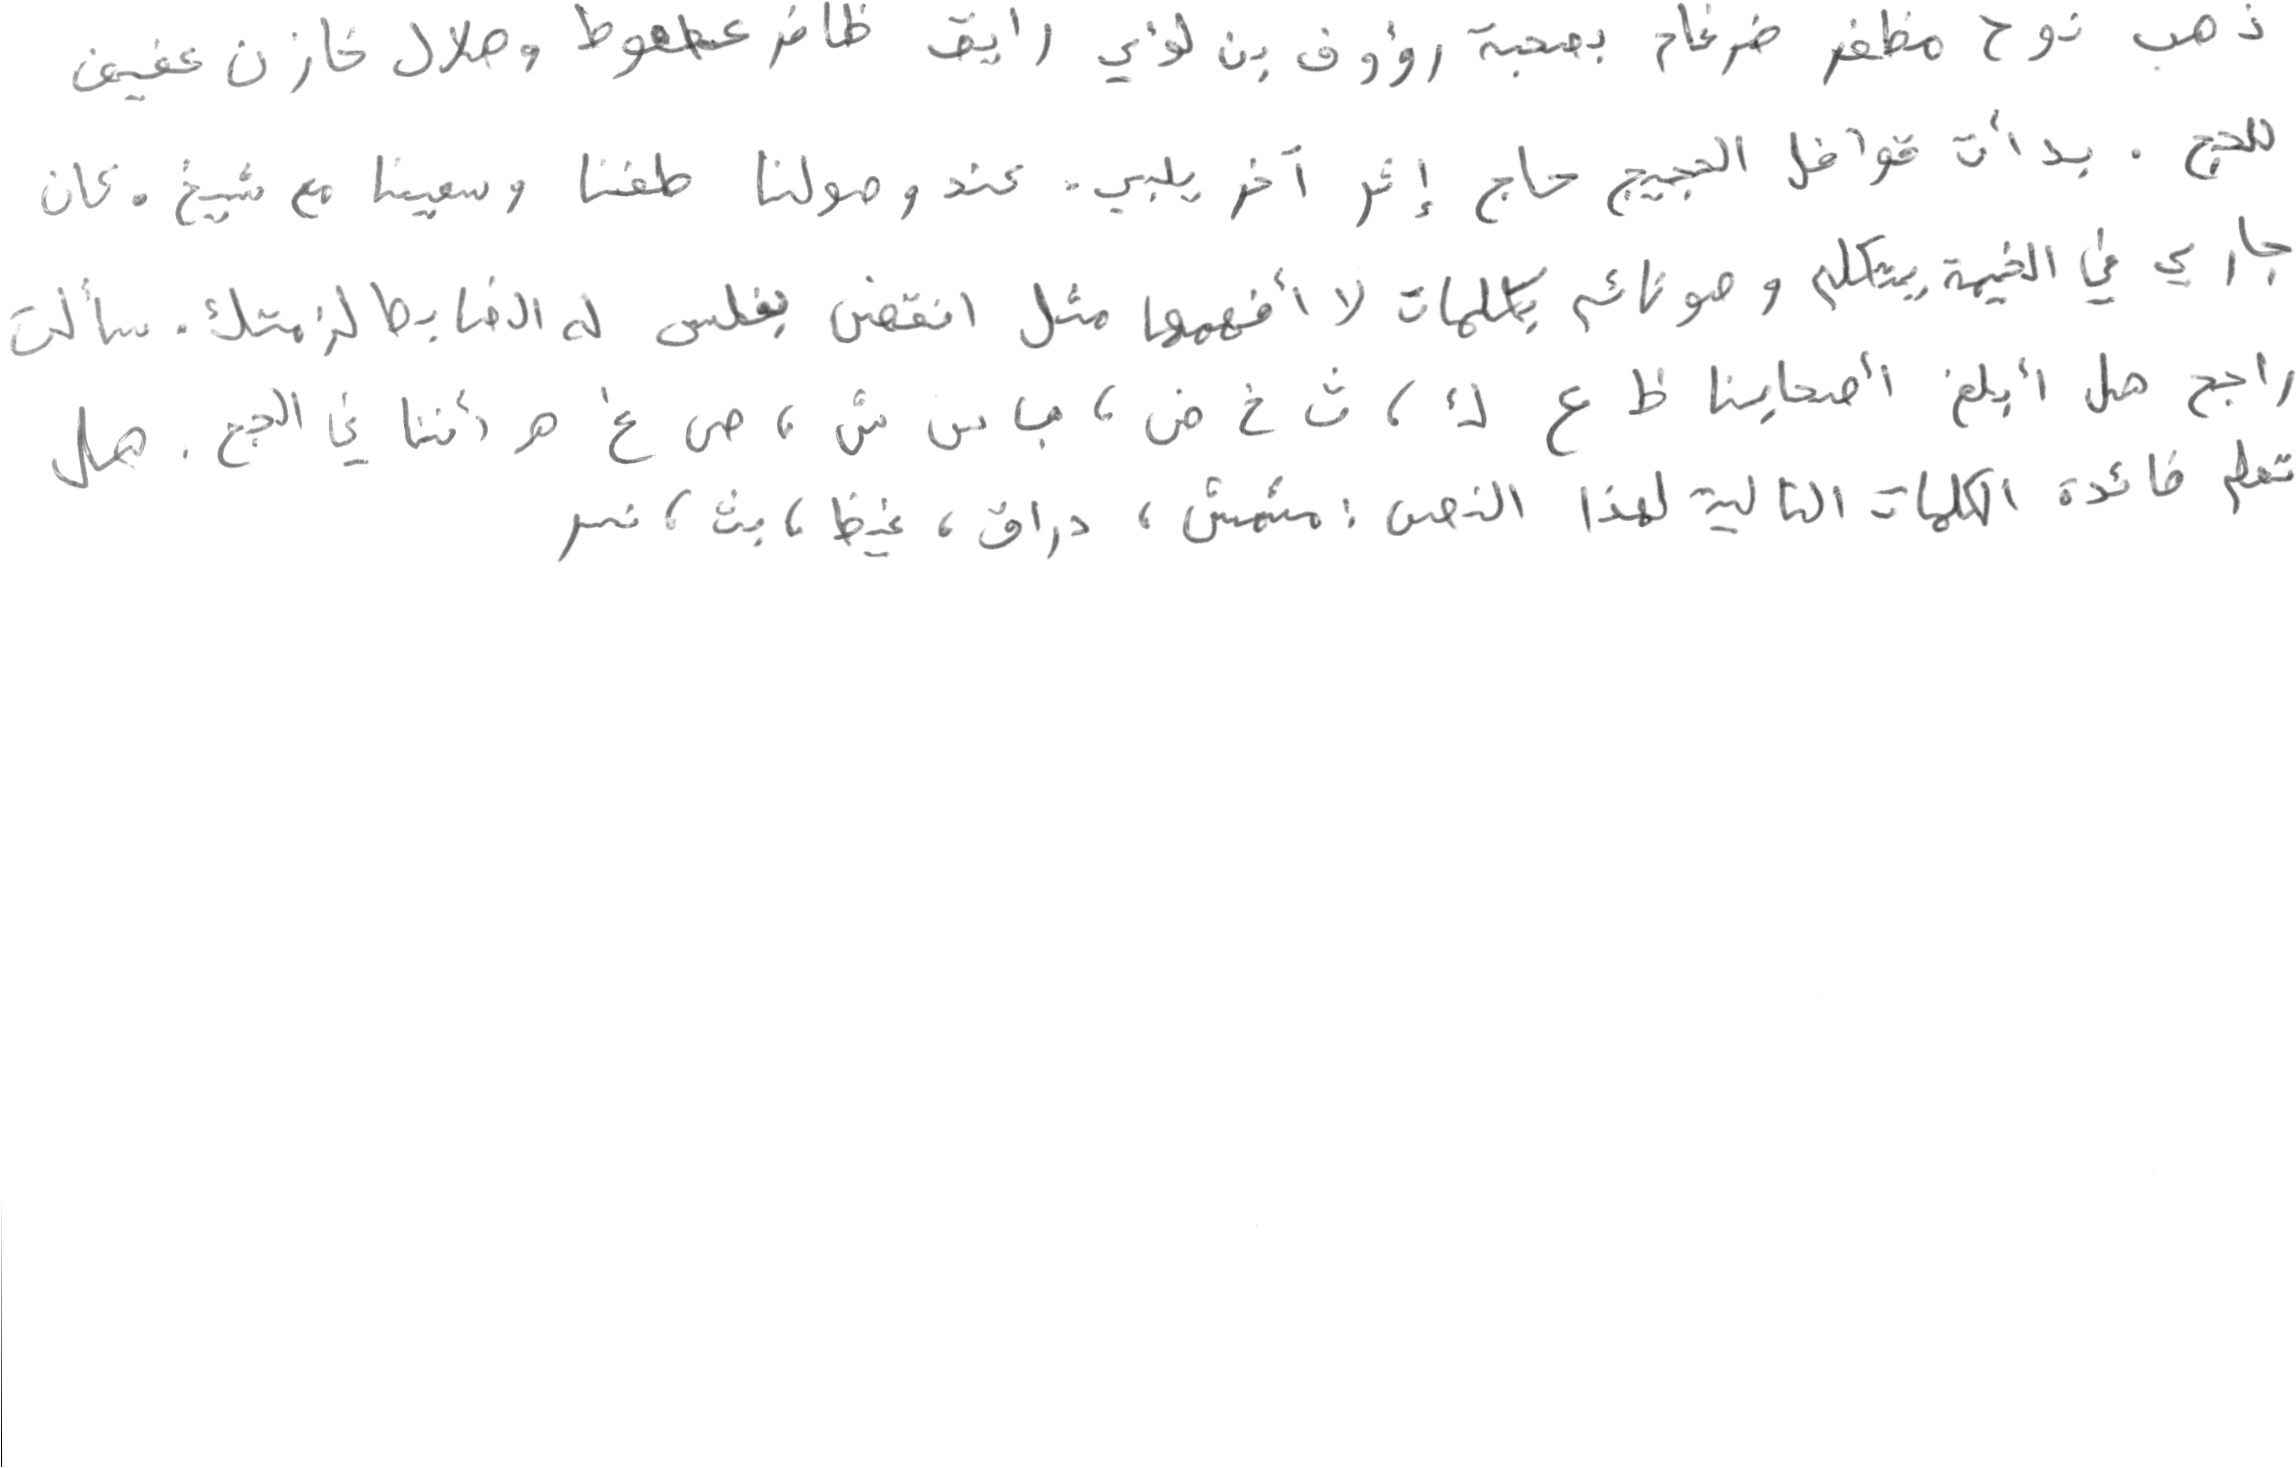 ذهب نوح مظفر ضرغام بصحبة رؤوف بن لؤي رايق ظافر عطعوط وهلال خازن عفيف
للحج . بدأت قوافل الحجيج حاج إثر آخر يلبي . عند وصولنا طفنا وسعينا مع شيخ . كان
جاري في الخيمة يتكلم وهو نائم بكلمات لا أفهمها مثل انقض بغلس له الضابط لزمتك . سألت
راجح هل أبلغ أصحابنا ظ ع ك ، ث خ ض ، ب س ش ، ص غ ه أننا في الحج . هل
تعلم فائدة الكلمات التالية لهذا النص : مشمش ، دراق ، غيظ ، بث ، نسر